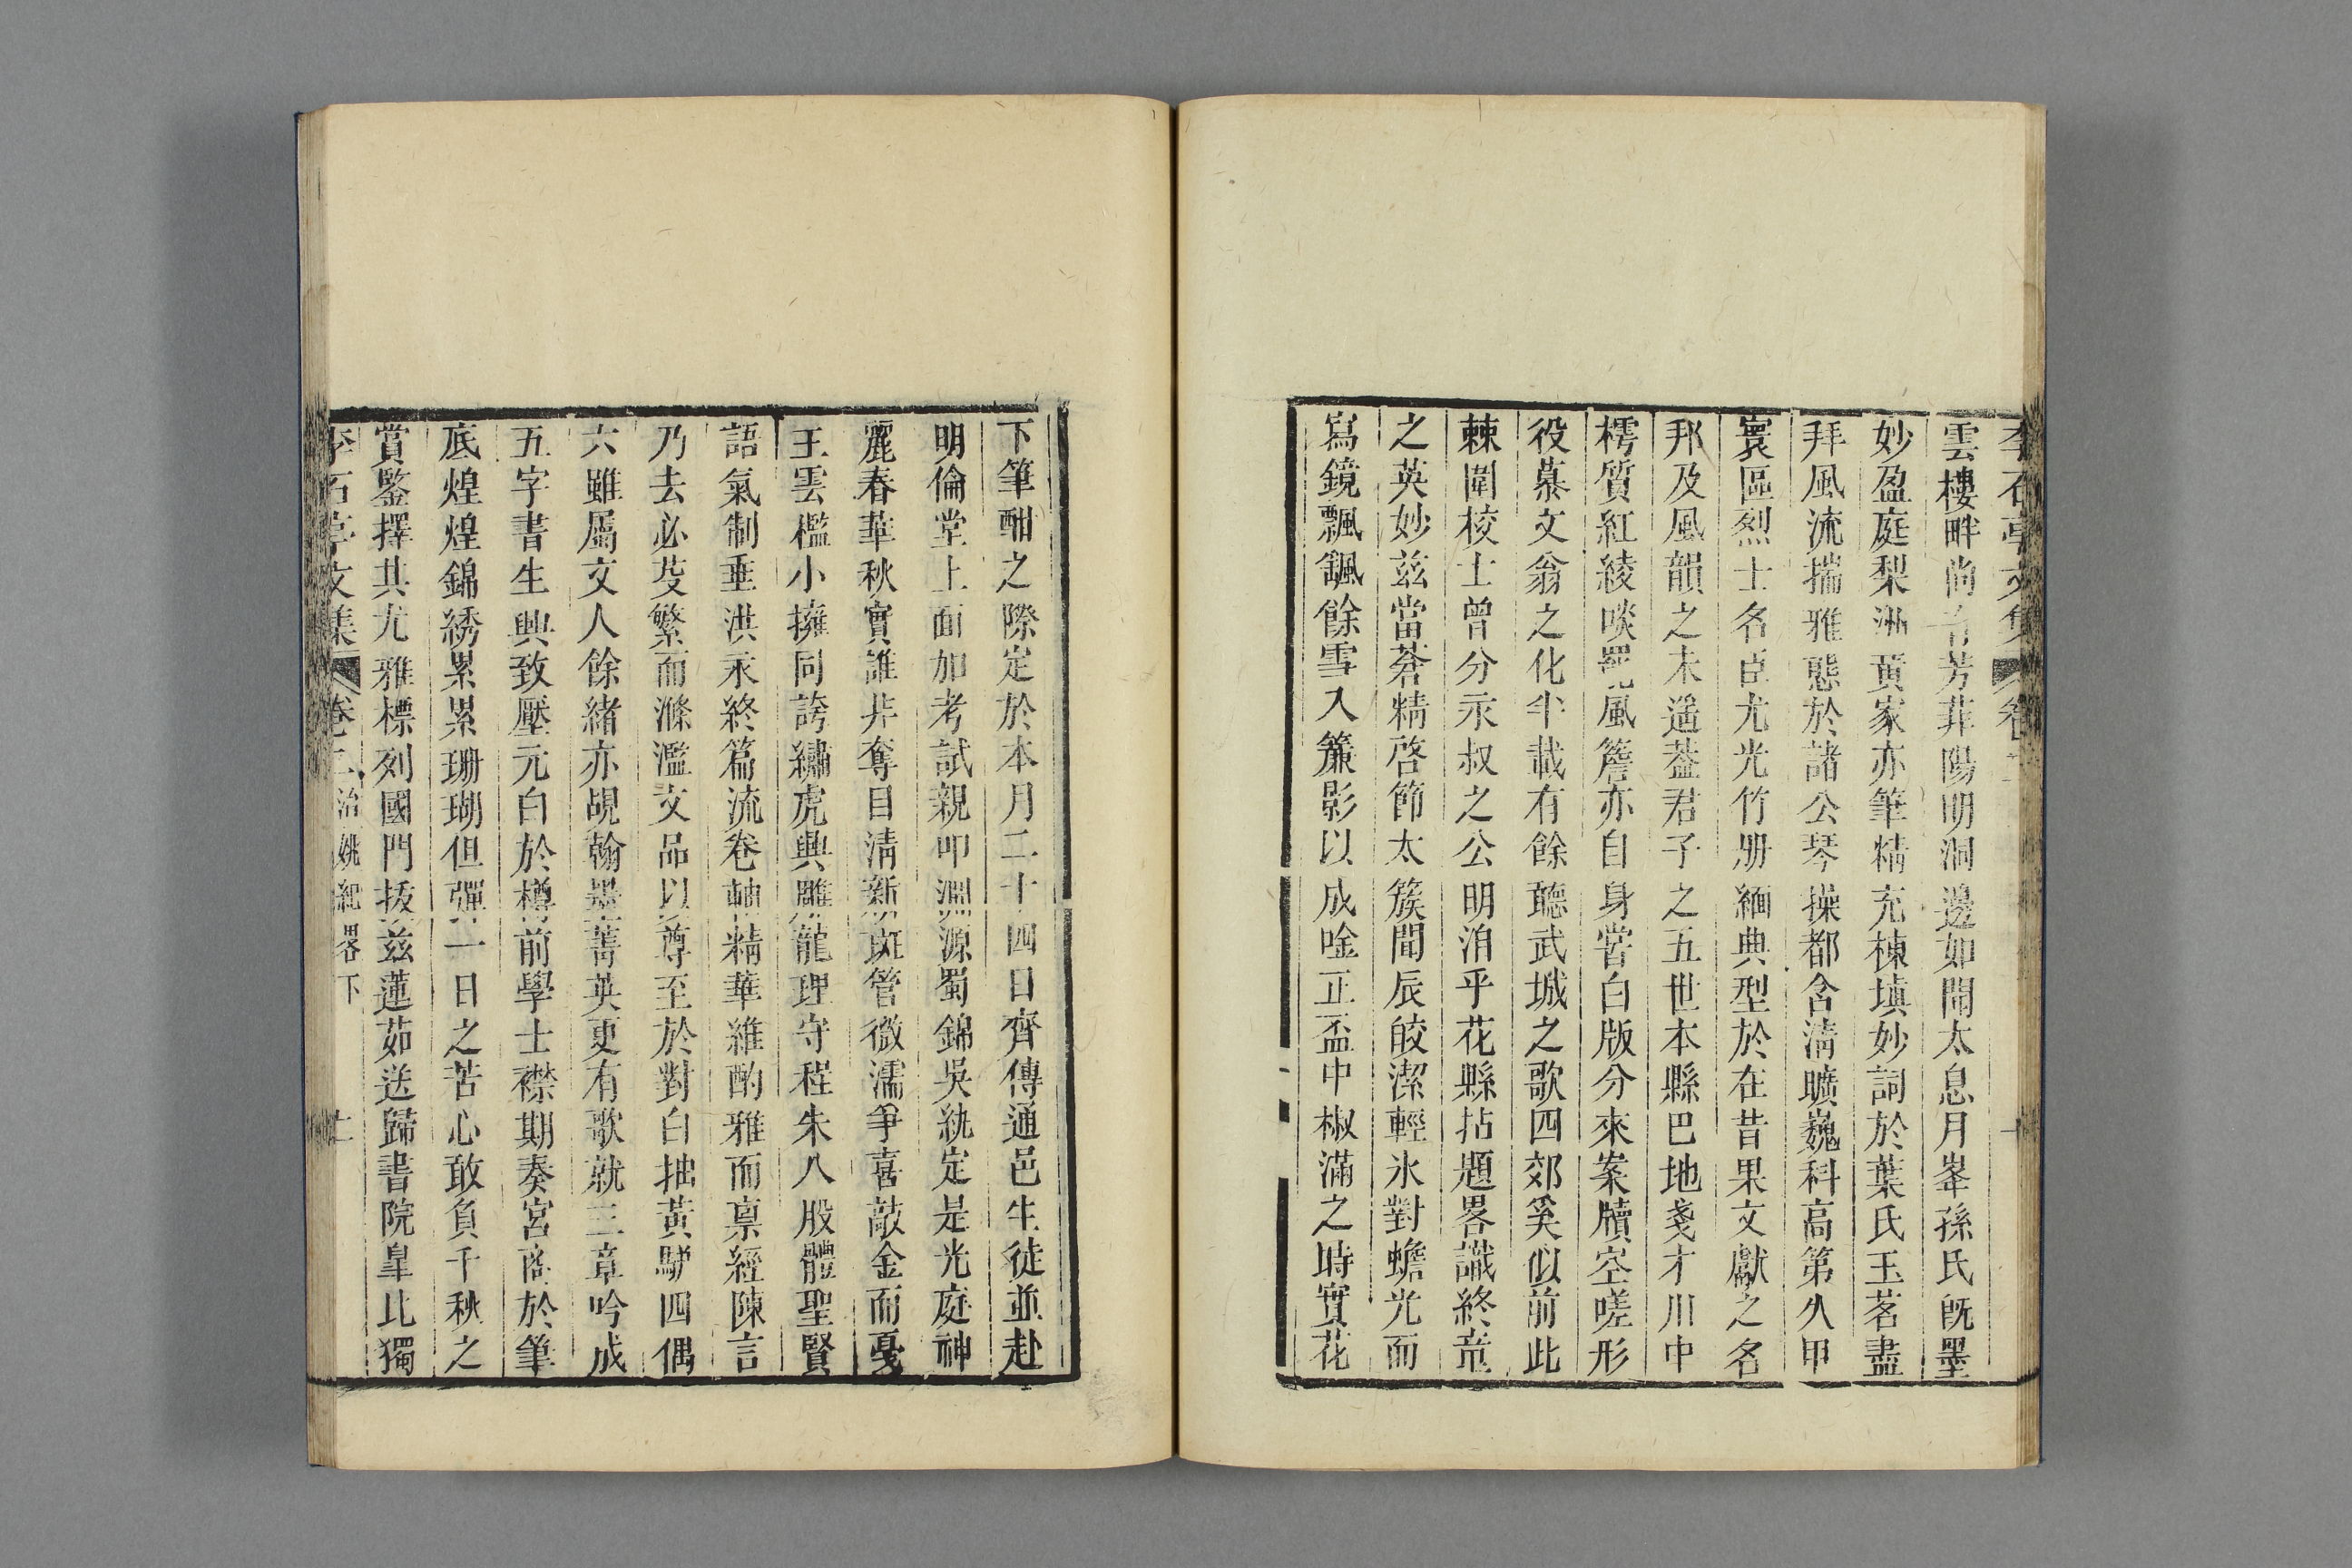 李石亭文集 卷二
雲樓畔尚 芳菲陽明洞邊如聞太息月峯孫氏旣墨
妙盈庭梨洲黃家亦筆精充棟塡妙詞於葉氏玉茗盡
拜風流揣雅態於諸公琴操都含淸曠巍科高第久甲
寰區烈士名臣尤光竹册緬典型於在昔果文獻之名
邦及風韻之未遥葢君子之五世本縣巴地戔才川中
樗質紅綾啖罷風簷亦自身嘗白版分來案牘空嗟形
役慕文翁之化半載有餘聽武城之歌四郊奚似前此
棘圍校士曾分永叔之公明洎乎花縣拈題畧識終童
之英妙兹當蒼精啓節太簇間辰皎潔輕氷對蟾光而
寫鏡飄颻餘雪入簾影以成唫正盃中椒滿之時實花
下筆酣之際定於本月二十四日齊傳通邑生徒並赴
明倫堂上面加考試親叩淵源蜀錦吳紈定是光庭神
麗春華秋實誰非奪目淸新斑管微濡爭喜敲金而戞
玉雲檻小擁同誇繡虎與雕龍理守程朱八股體聖賢
語氣制垂洪永終篇流卷軸精華維酌雅而禀經陳言
乃去必芟繁而滌濫文品以尊至於對白抽黃駢四偶
六雖屬文人餘緒亦覘翰墨菁英更有歌就三章吟成
五字書生興致壓元白於樽前學士襟期奏宮商於筆
底煌煌錦綉累累珊瑚但彈一日之苦心敢負千秋之
賞鑒擇其尤雅標列國門拔兹蓮茹送歸書院皐比獨
李石亭文集 卷二 治姚紀畧下